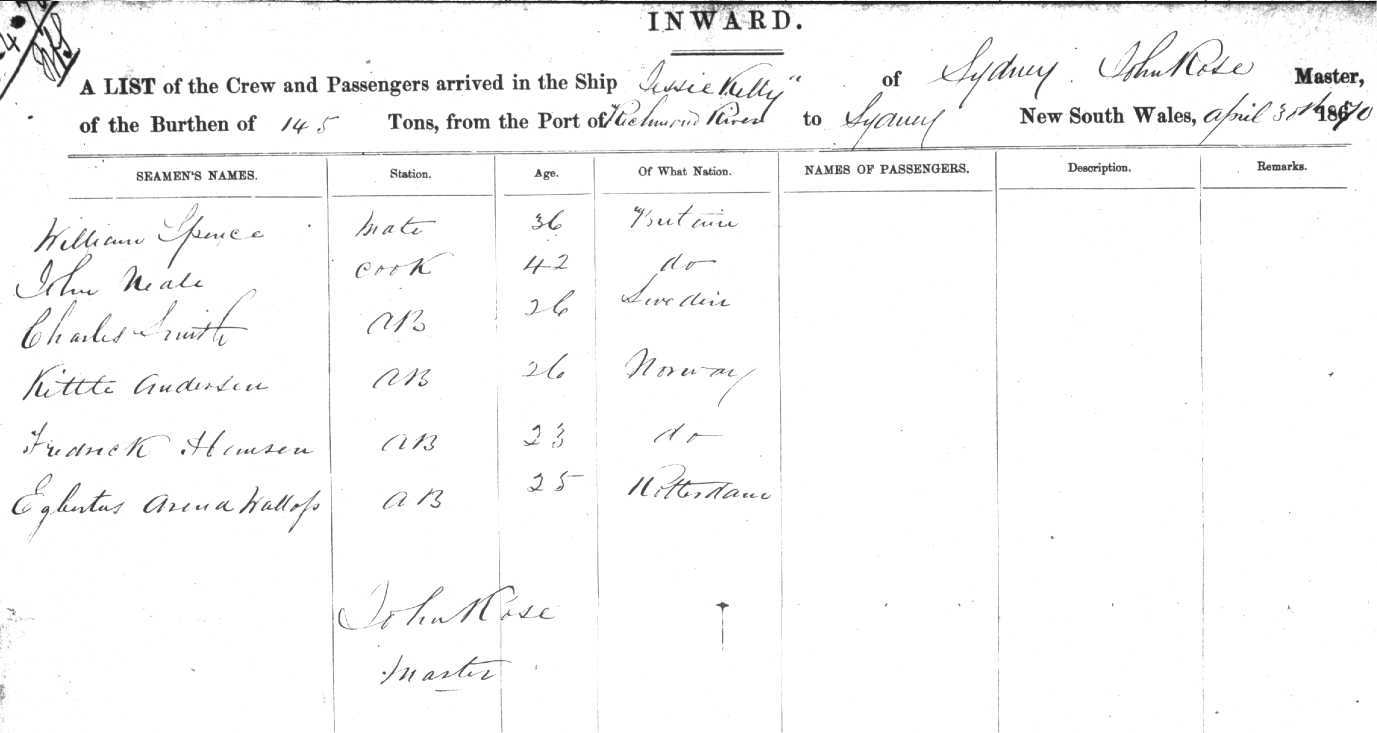 INWARD.
A LIST of the Crew and Passengers arrived in the Ship "Jessie Kelly" of Sydney John Rose Master,
of the Burthen of 145 Tons, from the Port of Richmond River to Sydney New South Wales, April 30th 1870
SEAMEN'S NAMES. Station. Age. Of What Nation. NAMES OF PASSENGERS. Description. Remarks.
William Spence Mate 36 Britain
John Neale Cook 42 do
Charles Smith AB 26 Sweden
Kittle Andersen AB 26 Norway
Fredrick Hansen AB 23 do
Egbertus AB 25 Rotterdam
John Rose
Master